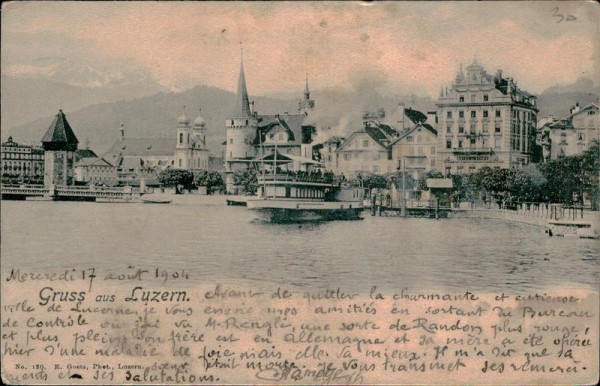 30
Mercredi 17 août 1904
Gruss aus Luzern.
Avant de quitter la charmante et curieuse
ville de Lucerne, je vous envoie mes amitiés en sortant du Bureau
de Contrôle où j'ai vu M. Rengle, une sorte de Randon plus rouge,
et plus plein. Son frère est en Allemagne et sa mère a été opérée
hier d'une maladie de foie mais elle va mieux. Il m'a dit que sa
sœur était morte. Je vous transmet ses remerci-
No. 130. E. Goetz, Phot., Luzern.
ments et ses salutations.